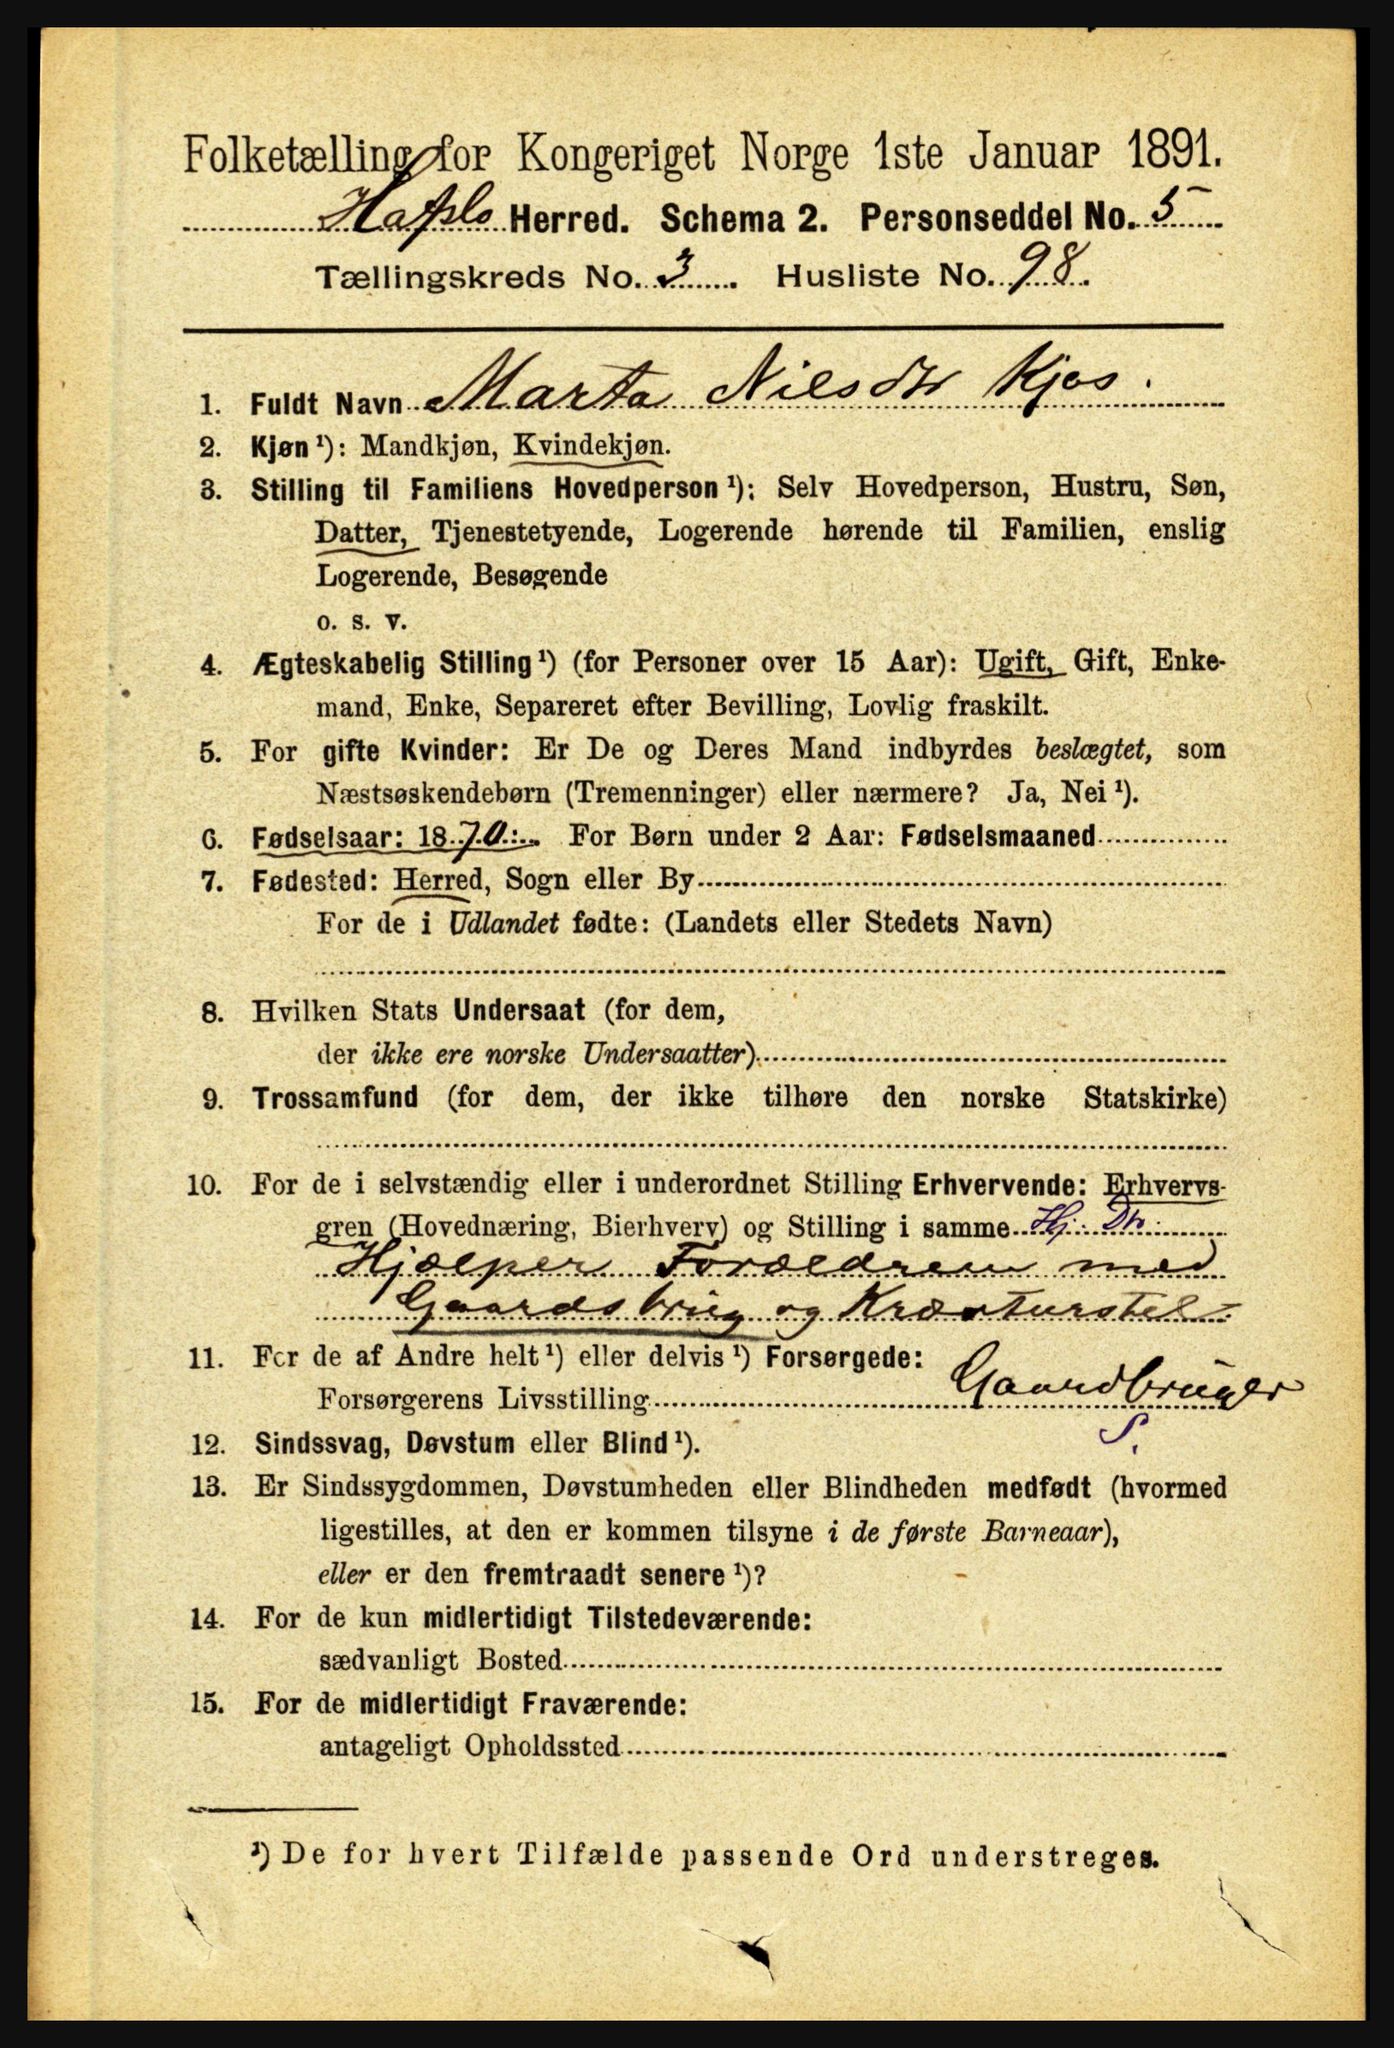 Folketælling for Kongeriget Norge 1ste Januar 1891.
Hafslo Herred. Schema 2. Personseddel No. 5
Tællingskreds No. 3. Husliste No. 98.
1. Fuldt Navn Marta Nilsdtr Kjos.
2. Kjøn ¹): Mandkjøn, Kvindekjøn.
3. Stilling til Familiens Hovedperson ¹): Selv Hovedperson, Hustru, Søn,
Datter, Tjenestetyende, Logerende hørende til Familien, enslig
Logerende, Besøgende
o. s. v.
4. Ægteskabelig Stilling ¹) (for Personer over 15 Aar): Ugift, Gift, Enke-
mand, Enke, Separeret efter Bevilling, Lovlig fraskilt.
5. For gifte Kvinder: Er De og Deres Mand indbyrdes beslægtet, som
Næstsøskendebørn (Tremenninger) eller nærmere? Ja, Nei ¹).
6. Fødselsaar: 1870. For Børn under 2 Aar: Fødselsmaaned
7. Fødested: Herred, Sogn eller By
For de i Udlandet fødte: (Landets eller Stedets Navn)
8. Hvilken Stats Undersaat (for dem,
der ikke ere norske Undersaatter)
9. Trossamfund (for dem, der ikke tilhøre den norske Statskirke)
10. For de i selvstændig eller i underordnet Stilling Erhvervende: Erhvervs-
gren (Hovednæring, Bierhverv) og Stilling i samme Hj. Dtr.
Hjælper Forældrene med
Gaardsbrug og Kræaturstel
11. For de af Andre helt ¹) eller delvis ¹) Forsørgede:
Forsørgerens Livsstilling Gaardbruger
S.
12. Sindssvag, Døvstum eller Blind ¹).
13. Er Sindssygdommen, Døvstumheden eller Blindheden medfødt (hvormed
ligestilles, at den er kommen tilsyne i de første Barneaar),
eller er den fremtraadt senere ¹)?
14. For de kun midlertidigt Tilstedeværende:
sædvanligt Bosted
15. For de midlertidigt Fraværende:
antageligt Opholdssted
¹) De for hvert Tilfælde passende Ord understreges.